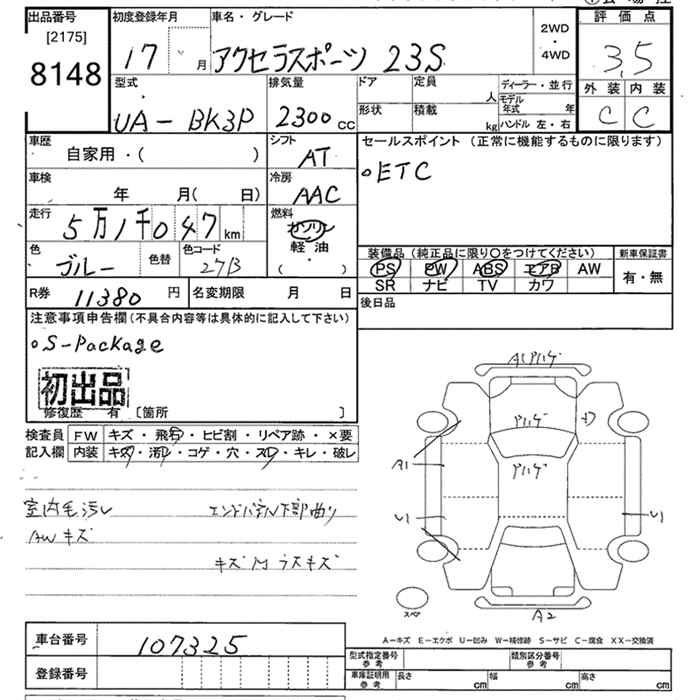 出品番号
[2175]
8148
初度登録年月
17 月
車名・グレード
アクセラスポーツ 23S
2WD
・
4WD
評価点
3,5
外装 内装
C C
型式
UA-BK3P
排気量
2300 CC
ドア
定員
人
形状
積載
kg
ディーラー・並行
モデル年式 年
ハンドル 左・右
車歴
自家用・( )
シフト
AT
セールスポイント (正常に機能するものに限ります)
○ETC
車検
年 月( 日)
冷房
AAC
走行
5万1千047km
燃料
ガソリン
軽・油
( )
色
ブルー
色替
色コード
27B
装備品(純正品に限り○をつけてください)
PS PW ABS エアB AW
SR ナビ TV カワ
新車保証書
有・無
R券 11380 円
名変期限 月 日
後日品
注意事項申告欄(不具合内容等は具体的に記入して下さい)
○S-Package
初出品
修復歴 有 〔箇所 〕
検査員記入欄
FW キズ・飛石・ヒビ割・リペア跡・×要
内装 キズ・汚レ・コゲ・穴・スレ・キレ・破レ
室内毛汚レ エンドパネル下部曲り
AWキズ
キズM ラスキズ
A1アハゲ
アハゲ
アハゲ
A1
U1
U1
スペア
A2
A-キズ E-エクボ U-凹み W-補修跡 S-サビ C-腐食 XX-交換済
車台番号 107325
登録番号
型式指定番号 参考
類別区分番号 参考
車庫証明用 参考
長さ cm
幅 cm
高さ cm